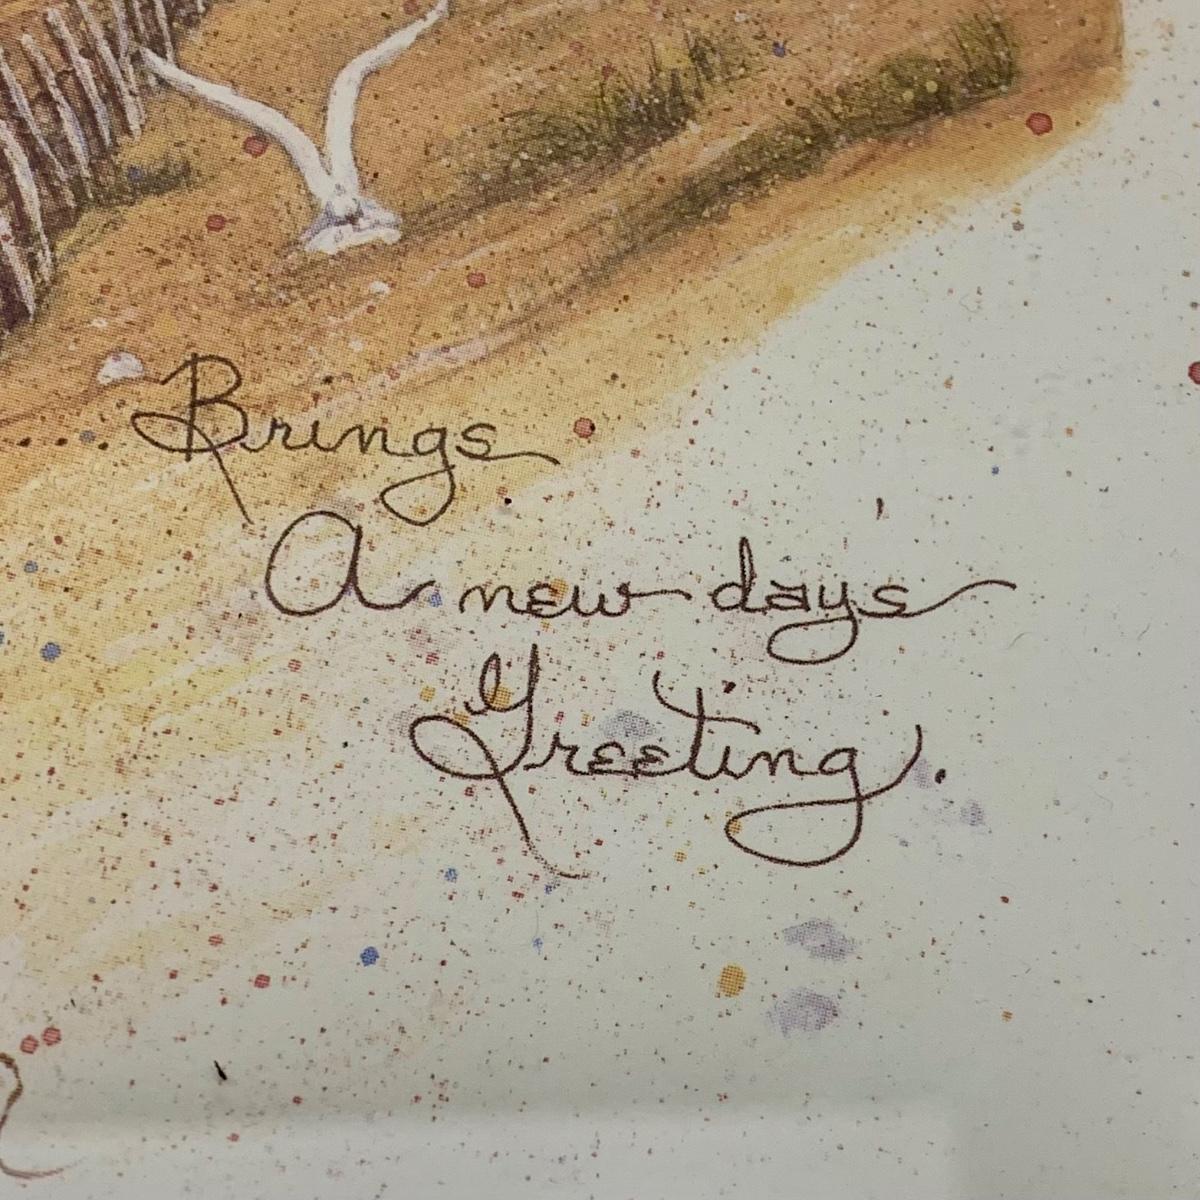 ....Brings
A new day's
Greeting.